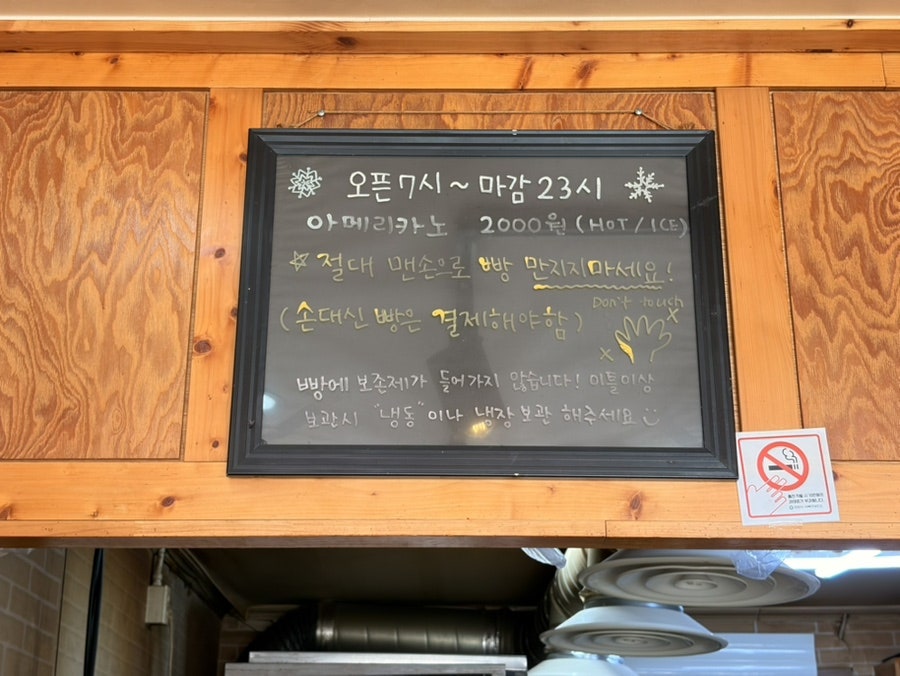 오픈 7시 ~ 마감 23시
아메리카노 2000원 (HOT / ICE)
☆ 절대 맨손으로 빵 만지지마세요!
Don't touch
(손대신 빵은 결제해야함)
x x
빵에 보존제가 들어가지 않습니다! 이틀이상
보관시 "냉동"이나 냉장보관 해주세요